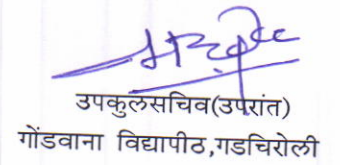 उपकुलसचिव(उपरांत)
गोंडवाना विद्यापीठ,गडचिरोली